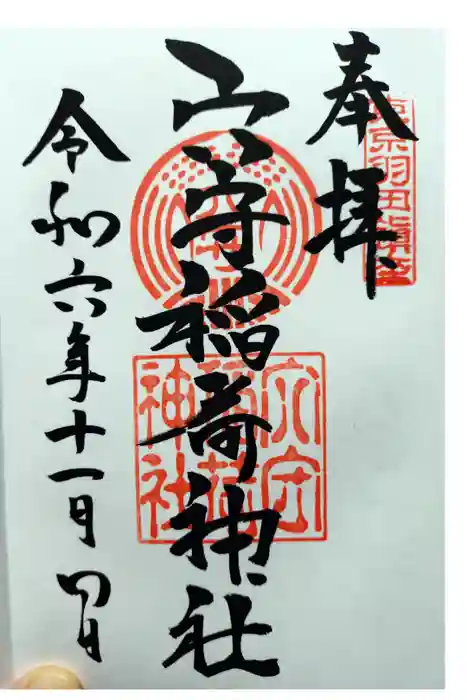 奉拝
東京羽田鎮座
穴守稲荷神社
穴守
稲荷
神社
令和六年十一月四日